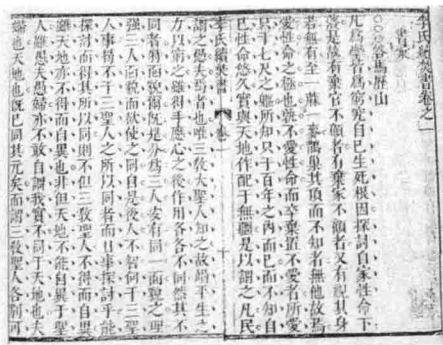 李氏續焚書卷之一
書彙
○○答馬歷山
凡爲學皆爲窮究自己生死根因探討自家性命下
落是故有棄官不顧者有棄家不顧者又有視其身
若無有至一麻一麥鵲巢其頂而不知者無他故焉
愛性命之極也孰不愛性命而卒棄置不愛者所愛
只于七尺之軀所知只于百年之內而已而不知自
己性命悠久實與天地作配于無疆是以謂之凡民
李氏續焚書 卷一
謂之愚夫焉者也唯三教大聖人知之故竭平生之
力以窮之雖得手應心之後作用各各不同然其不
同者特面貌爾既是分爲三人安有同一面貌之理
强三人面貌而欲使之同自是後人不智何干三聖
人事曷不于三聖人之所以同者而日事探討乎能
探討而得其所以同則不但三教聖人不得而自異
雖天地亦不得而自異也非但天地不能自異于聖
人雖愚夫愚婦亦不敢自謂我實不同于天地也夫
婦也天地也既已同其元矣而謂三教聖人各別可